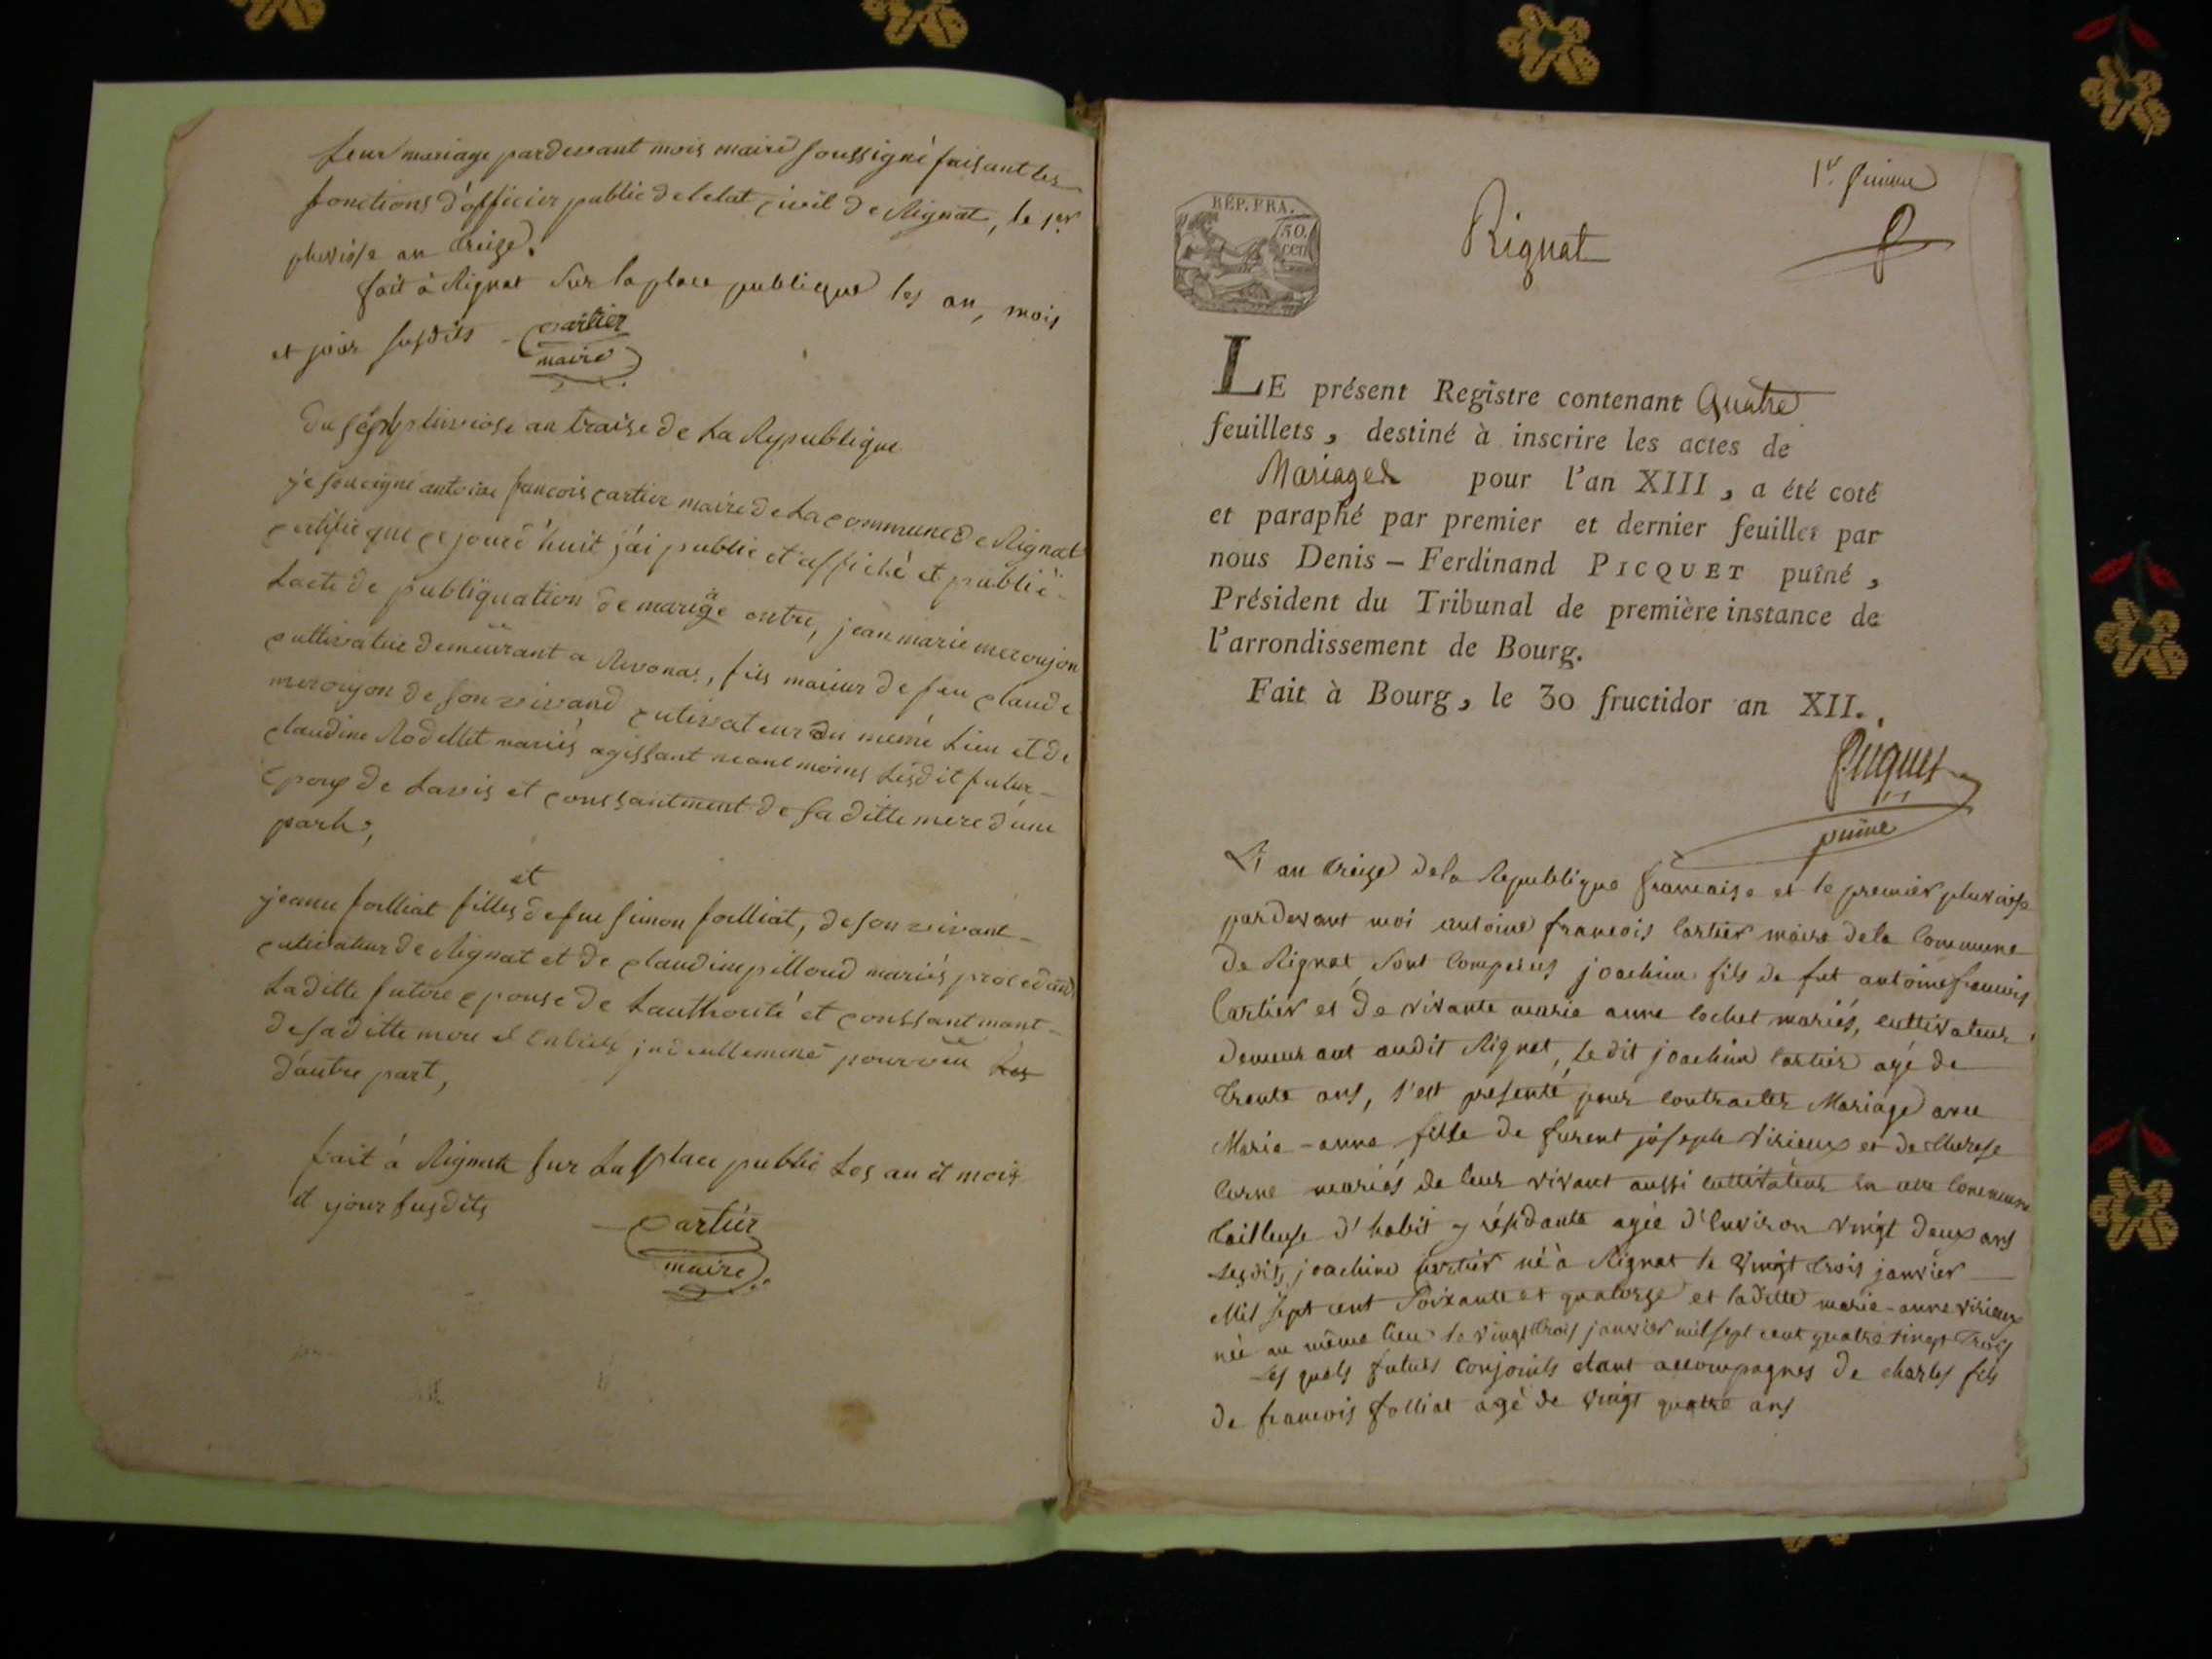 leur mariage pardevant mois maire soussigné faisant les
fonctions d'officier public de l'etat civil de Rignat, le 1er
pluviose an treize.
fait à Rignat sur la place publique les an, mois
et jour susdits cartier
maire
du sept pluviose an traise de La Republique
je soucigné antoine francois cartier maire de La commune de Rignat
certifie que ce jourd'huit j'ai publié et affiché et publié
Lacte de publiquation de mariage entre, jean marie
cultivateur demeurant a Revonas, fils maieur de feu claude
de son vivand cutivateur du même Lieu et de
claudine Rodellet mariés agissant neantmoins Lesdit futur
epoux de Lavis et conssantment de sa ditte mere d'une
part,
et
jeanne folliat filles de feu simon folliat, de son vivant
cutivateur de Rignat et de claudine pilloud mariés procedand
Laditte future epouse de Lauthorité et conssantmant
de saditte mere et pourvëu Les
d'autre part,
fait á Rignat sur La place public Les an et mois
et jour susdits
cartier
maire
1er. puiné
RÉP. FRA.
50.
cen
Rignat
LE présent Registre contenant Quatre
feuillets, destiné à inscrire les actes de
Mariages pour l'an XIII, a été coté
et paraphé par premier et dernier feuillet par
nous Denis – Ferdinand PICQUET puîné,
Président du Tribunal de première instance de
l'arrondissement de Bourg.
Fait à Bourg, le 30 fructidor an XII.
Picquet
puiné
L'an treize de la Republique francaise et le premier pluviose
pardevant moi antoine francois Cartier maire de la Commune
de Rignat sont comparus joachim fils de fut antoine francois
Cartier et de vivante marie anne cochet mariés, cultivateur
demeurant audit Rignat, le dit joachim cartier agé de
trente ans, s'est presenté pour contracter Mariage avec
Marie-anne fille de furent joseph Virieux et de therese
Corne mariés de leur vivant aussi cultivateur en cette Commune
tailleuse d'habit y résidante agée d'Environ vingt deux ans
lesdits joachim cartier né à Rignat le vingt trois janvier
Mil sept cent soixante et quatorze et laditte marie-anne virieux
née au même lieu le vingt trois janvier mil sept cent quatre vingt trois
Les quels futurs conjoints etant accompagnés de charles fils
de francois folliat agé de vingt quatre ans